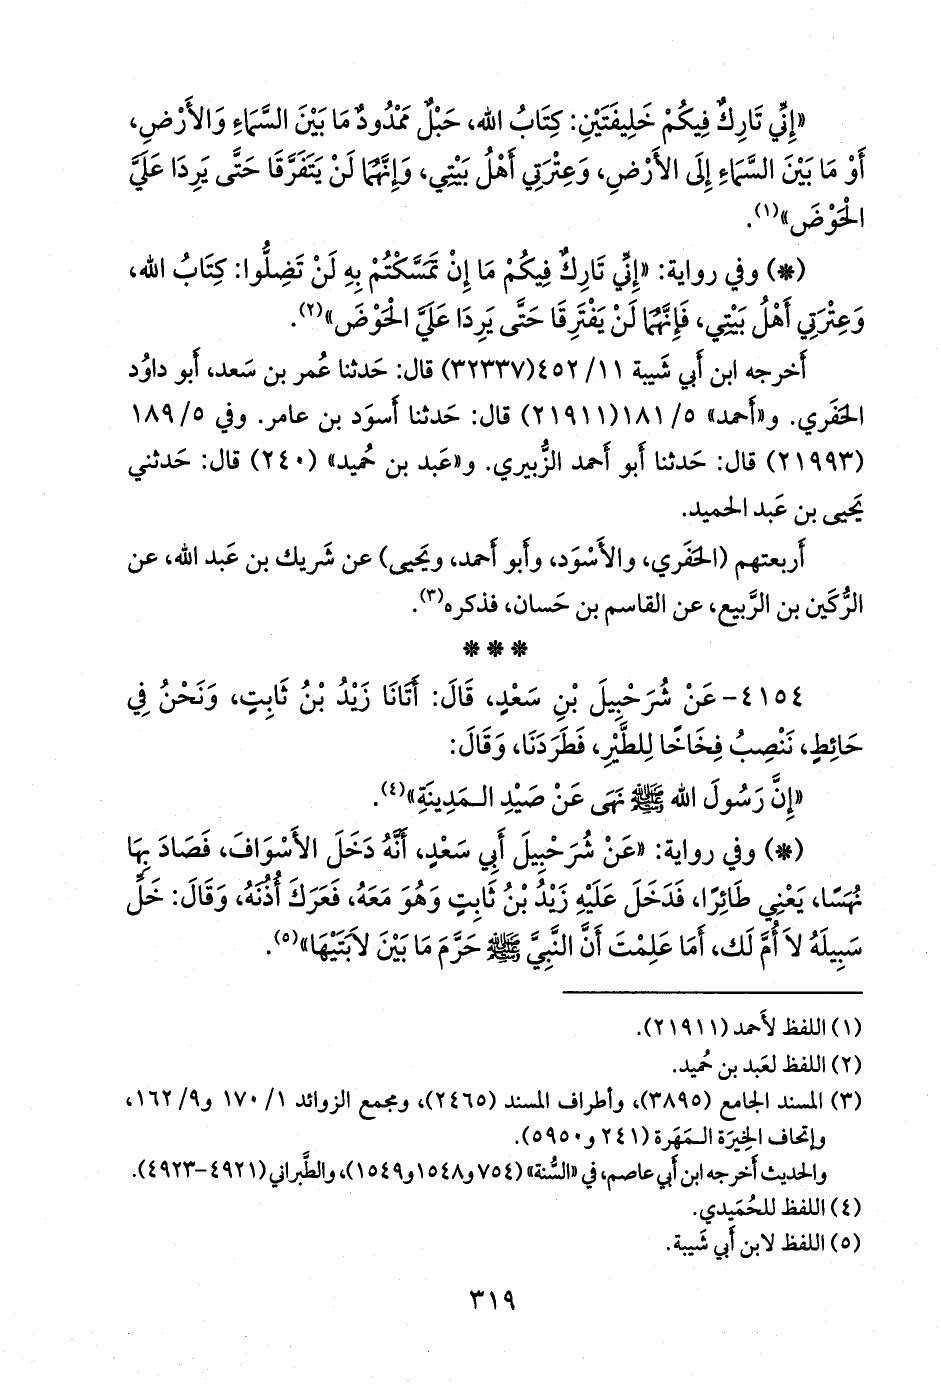 «إِنِّي تَارِكٌ فِيكُمْ خَلِيفَتَيْنِ: كِتَابُ الله، حَبْلٌ مَمْدُودٌ مَا بَيْنَ السَّمَاءِ وَالأَرْضِ،
أَوْ مَا بَيْنَ السَّمَاءِ إِلَى الأَرْضِ، وَعِتْرَتِي أَهْلُ بَيْتِي، وَإِنَّهُمَا لَنْ يَتَفَرَّقَا حَتَّى يَرِدَا عَلَيَّ
الْحَوْضَ»(١).
(*) وفي رواية: «إِنِّي تَارِكٌ فِيكُمْ مَا إِنْ تَمَسَّكْتُمْ بِهِ لَنْ تَضِلُّوا: كِتَابُ الله،
وَعِتْرَتِي أَهْلُ بَيْتِي، فَإِنَّهُمَا لَنْ يَفْتَرِقَا حَتَّى يَرِدَا عَلَيَّ الْحَوْضَ»(٢).
أَخرجه ابن أَبي شَيبة ١١/ ٤٥٢(٣٢٣٣٧) قال: حَدثنا عُمر بن سَعد، أَبو داوُد
الحَفَري. و«أَحمد» ٥/ ١٨١(٢١٩١١) قال: حَدثنا أَسوَد بن عامر. وفي ٥/ ١٨٩
(٢١٩٩٣) قال: حَدثنا أَبو أَحمد الزُّبيري. و«عَبد بن حُميد» (٢٤٠) قال: حَدثني
يَحيى بن عَبد الحميد.
أَربعتهم (الحَفَري، والأَسْوَد، وأَبو أَحمد، ويَحيى) عن شَريك بن عَبد الله، عن
الرُّكَين بن الرَّبيع، عن القاسم بن حَسان، فذكره(٣).
* * *
٤١٥٤- عَنْ شُرَحْبِيلَ بْنِ سَعْدٍ، قَالَ: أَتَانَا زَيْدُ بْنُ ثَابِتٍ، وَنَحْنُ فِي
حَائِطٍ، نَنْصِبُ فِخَاخًا لِلطَّيْرِ، فَطَرَدَنَا، وَقَالَ:
«إِنَّ رَسُولَ الله ﷺ نَهَى عَنْ صَيْدِ الـمَدِينَةِ»(٤).
(*) وفي رواية: «عَنْ شُرَحْبِيلَ أَبِي سَعْدٍ، أَنَّهُ دَخَلَ الأَسْوَافَ، فَصَادَ بِهَا
نُهَسًا، يَعْنِي طَائِرًا، فَدَخَلَ عَلَيْهِ زَيْدُ بْنُ ثَابِتٍ وَهُوَ مَعَهُ، فَعَرَكَ أُذُنَهُ، وَقَالَ: خَلِّ
سَبِيلَهُ لاَ أُمَّ لَكَ، أَمَا عَلِمْتَ أَنَّ النَّبِيَّ ﷺ حَرَّمَ مَا بَيْنَ لاَبَتَيْهَا»(٥).
(١) اللفظ لأَحمد (٢١٩١١).
(٢) اللفظ لعَبد بن حُميد.
(٣) المسند الجامع (٣٨٩٥)، وأطراف المسند (٢٤٦٥)، ومجمع الزوائد ١/ ١٧٠ و٩/ ١٦٢،
وإتحاف الخِيرَة الـمَهَرة (٢٤١ و٥٩٥٠).
والحديث أَخرجه ابن أَبي عاصم، في «السُّنة» (٧٥٤ و١٥٤٨ و١٥٤٩)، والطَّبراني (٤٩٢١-٤٩٢٣).
(٤) اللفظ للحُمَيدي.
(٥) اللفظ لابن أَبي شَيبة.
٣١٩